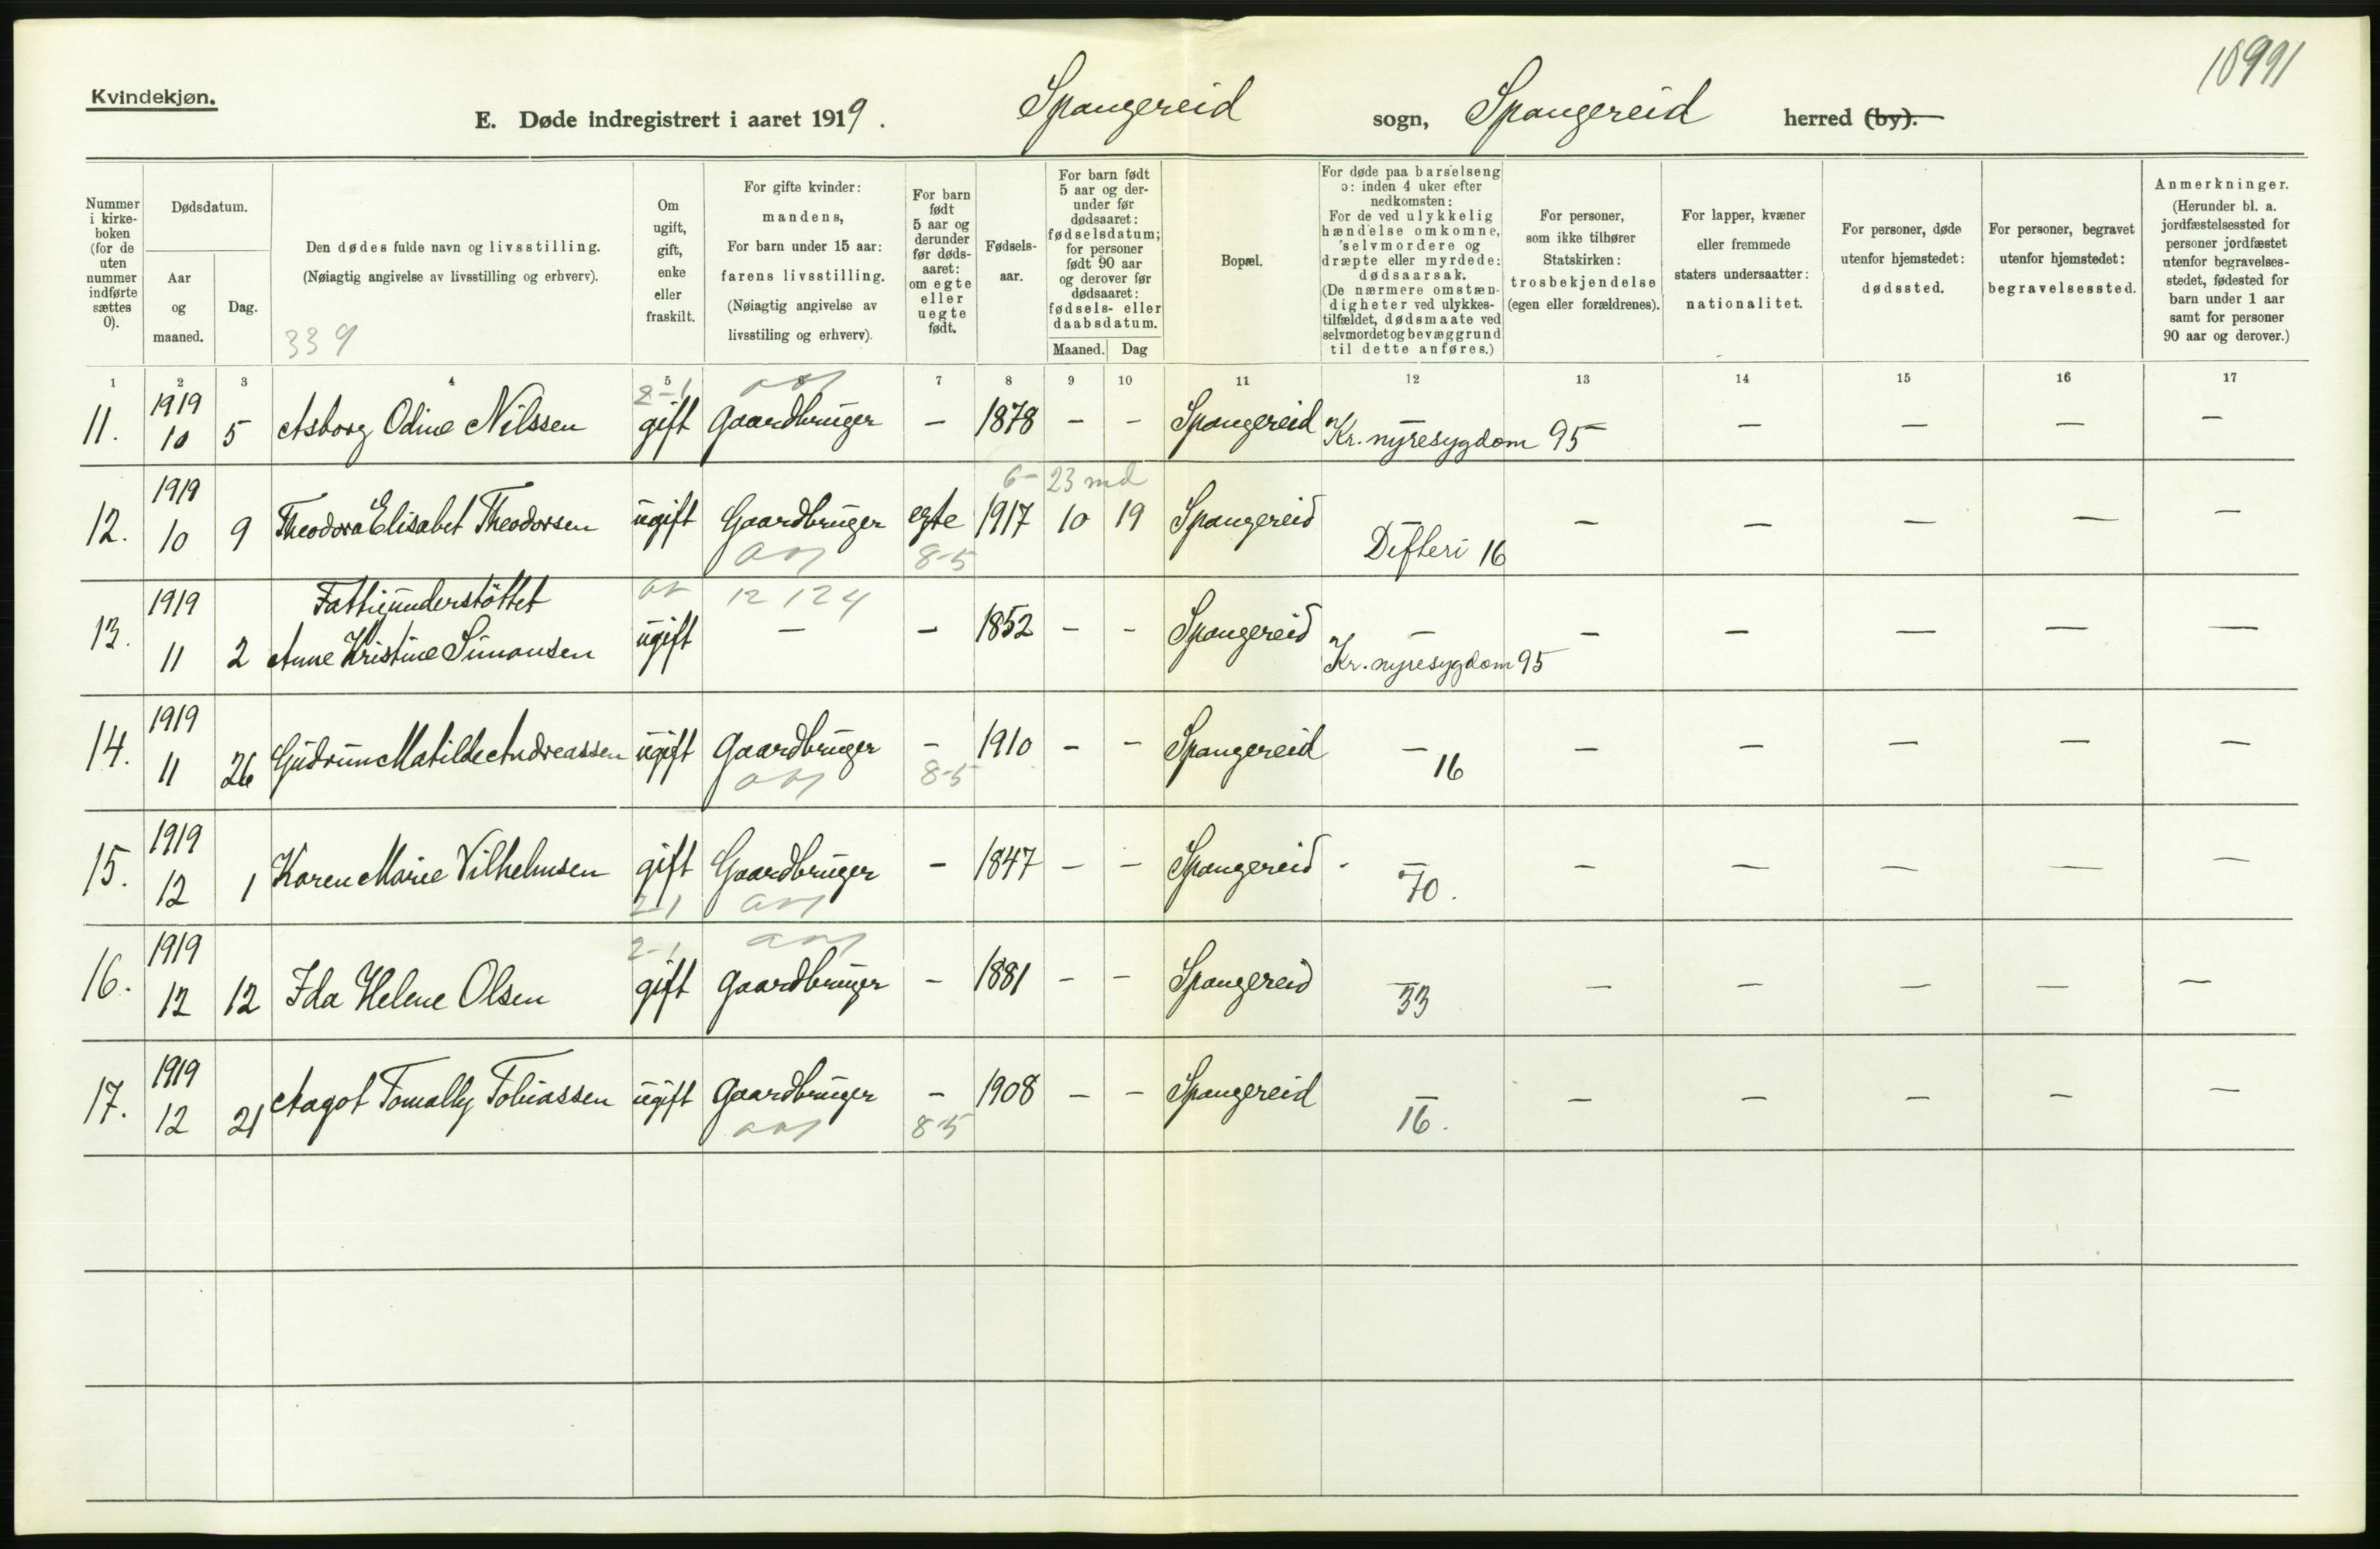 10991
Kvindekjøn.
E. Døde indregistrert i aaret 1919. Spangereid sogn, Spangereid herred (by).
Nummer i kirkeboken (for de uten nummer indførte sættes 0).
Dødsdatum.
Aar og maaned.
Dag.
Den dødes fulde navn og livsstilling.
(Nøiagtig angivelse av livsstilling og erhverv).
339
Om ugift, gift, enke eller fraskilt.
For gifte kvinder: mandens,
For barn under 15 aar: farens livsstilling.
(Nøiagtig angivelse av livsstiling og erhverv).
For barn født 5 aar og derunder før dødsaaret: om egte eller uegte født.
Fødselsaar.
For barn født 5 aar og derunder før dødsaaret: fødselsdatum; for personer født 90 aar og derover før dødsaaret: fødsels- eller daabsdatum.
Maaned. Dag
Bopæl.
For døde paa barselseng ɔ: inden 4 uker efter nedkomsten:
For de ved ulykkelig hændelse omkomne, selvmordere og dræpte eller myrdede: dødsaarsak.
(De nærmere omstændigheter ved ulykkestilfældet, dødsmaate ved selvmordet og bevæggrund til dette anføres.)
For personer, som ikke tilhører Statskirken: trosbekjendelse (egen eller forældrenes).
For lapper, kvæner eller fremmede staters undersaatter: nationalitet.
For personer, døde utenfor hjemstedet: dødssted.
For personer, begravet utenfor hjemstedet: begravelsessted.
Anmerkninger.
(Herunder bl. a. jordfæstelsessted for personer jordfæstet utenfor begravelsesstedet, fødested for barn under 1 aar samt for personer 90 aar og derover.)
1 2 3 4 5 6 7 8 9 10 11 12 13 14 15 16 17
2-1
11. 1919 10 5 Asborg Odine Nilssen gift Gaardbruger - 1878 - - Spangereid - Kr. nyresygdom 95 - - - -
6- 23 md
12. 1919 10 9 Theodora Elisabet Theodorsen ugift Gaardbruger egte 1917 10 19 Spangereid - Difteri 16 - - - - -
8-5
13. 1919 11 2 Fattigunderstöttet Anne Kristine Simonsen ugift - - 1852 - - Spangereid - Kr. nyresygdom 95 - - - - -
12 124
14. 1919 11 26 Gudrun Matilde Andreassen ugift Gaardbruger - 1910 - - Spangereid - 16 - - - - -
8-5
15. 1919 12 1 Karen Marie Vilhelmsen gift Gaardbruger - 1847 - - Spangereid - 70. - - - - -
2-1
2-1
16. 1919 12 12 Ida Helene Olsen gift Gaardbruger - 1881 - - Spangereid - 33 - - - - -
17. 1919 12 21 Aagot Tomally Tobiassen ugift Gaardbruger - 1908 - - Spangereid - 16. - - - - -
8-5